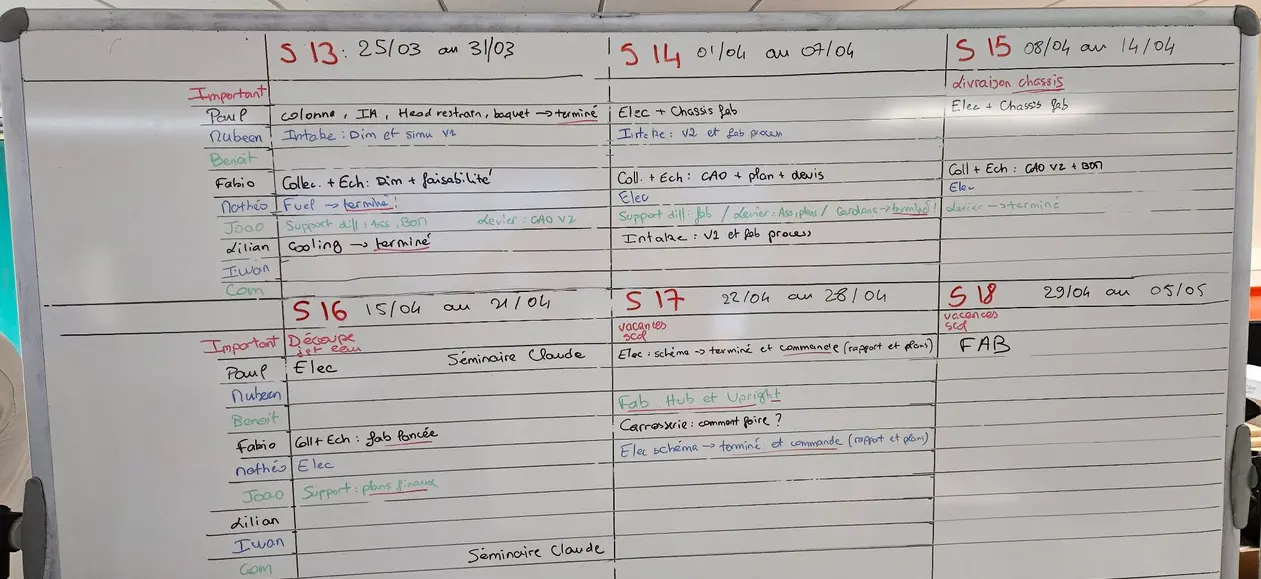 S 13 : 25/03 au 31/03
S 14 01/04 au 07/04
S 15 08/04 au 14/04
Important
Livraison chassis
Paul
colonne, IA, Head restrain, baquet → terminé
Elec + Chassis fab
Elec + Chassis fab
Nubeen
Intake : Dim et simu V1
Intake : V2 et fab process
Benoit
Fabio
Collec. + Ech : Dim + faisabilité
Coll. + Ech : CAO + plan + devis
Coll + Ech : CAO V2 + BOM
Mathéo
Fuel → terminé !
Elec
Elec
Joao
Support diff : Ass, BOM
Levier : CAO V2
Support diff : fab / Levier : Ass, plans / Cardans → terminé !
Levier → terminé
Lilian
Cooling → terminé
Intake : V2 et fab process
Iwan
Com
S 16 15/04 au 21/04
S 17 22/04 au 28/04
S 18 29/04 au 05/05
Important
Découpe
jet eau
vacances
scol
vacances
scol
Paul
Elec
Séminaire Claude
Elec : schéma → terminé et commande (rapport et plans)
FAB
Nubeen
Benoit
Fab Hub et Upright
Fabio
Coll + Ech : fab lancée
Carrosserie : comment faire ?
Mathéo
Elec
Elec schéma → terminé et commande (rapport et plans)
Joao
Support : plans finaux
Lilian
Iwan
Séminaire Claude
Com